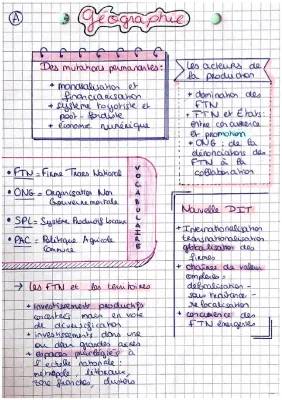 A
Géographie
Des mutations permanentes :
+ mondialisation et
financiarisation
+ système tayloriste et
post-fordiste
+ économie numérique
les acteurs de
la production
+ domination des
FTN
+ FTN et États :
entre concurrence
et promotion
+ ONG : de la
dénonciations des
FTN à la
collaboration
VOCABULAIRE
• FTN = Firme Trans Nationale
• ONG = Organisation Non
Gouvernementale
• SPL = Système Productif Locaux
• PAC = Politique Agricole
Commune
Nouvelle DIT
+ Internationalisation
transnationalisation
globalisation des
firmes
+ chaînes de valeur
complexes -
délocalisation -
sous traitance -
relocalisation
+ concurrence des
FTN émergées
→ les FTN et les territoires
+ investissements productifs
concentrés mais en voie
de diversification
+ investissements dans une
ou deux grandes aires
+ espaces privilégiés à
l'échelle nationale :
métropole, littoraux,
zone franches, clusters